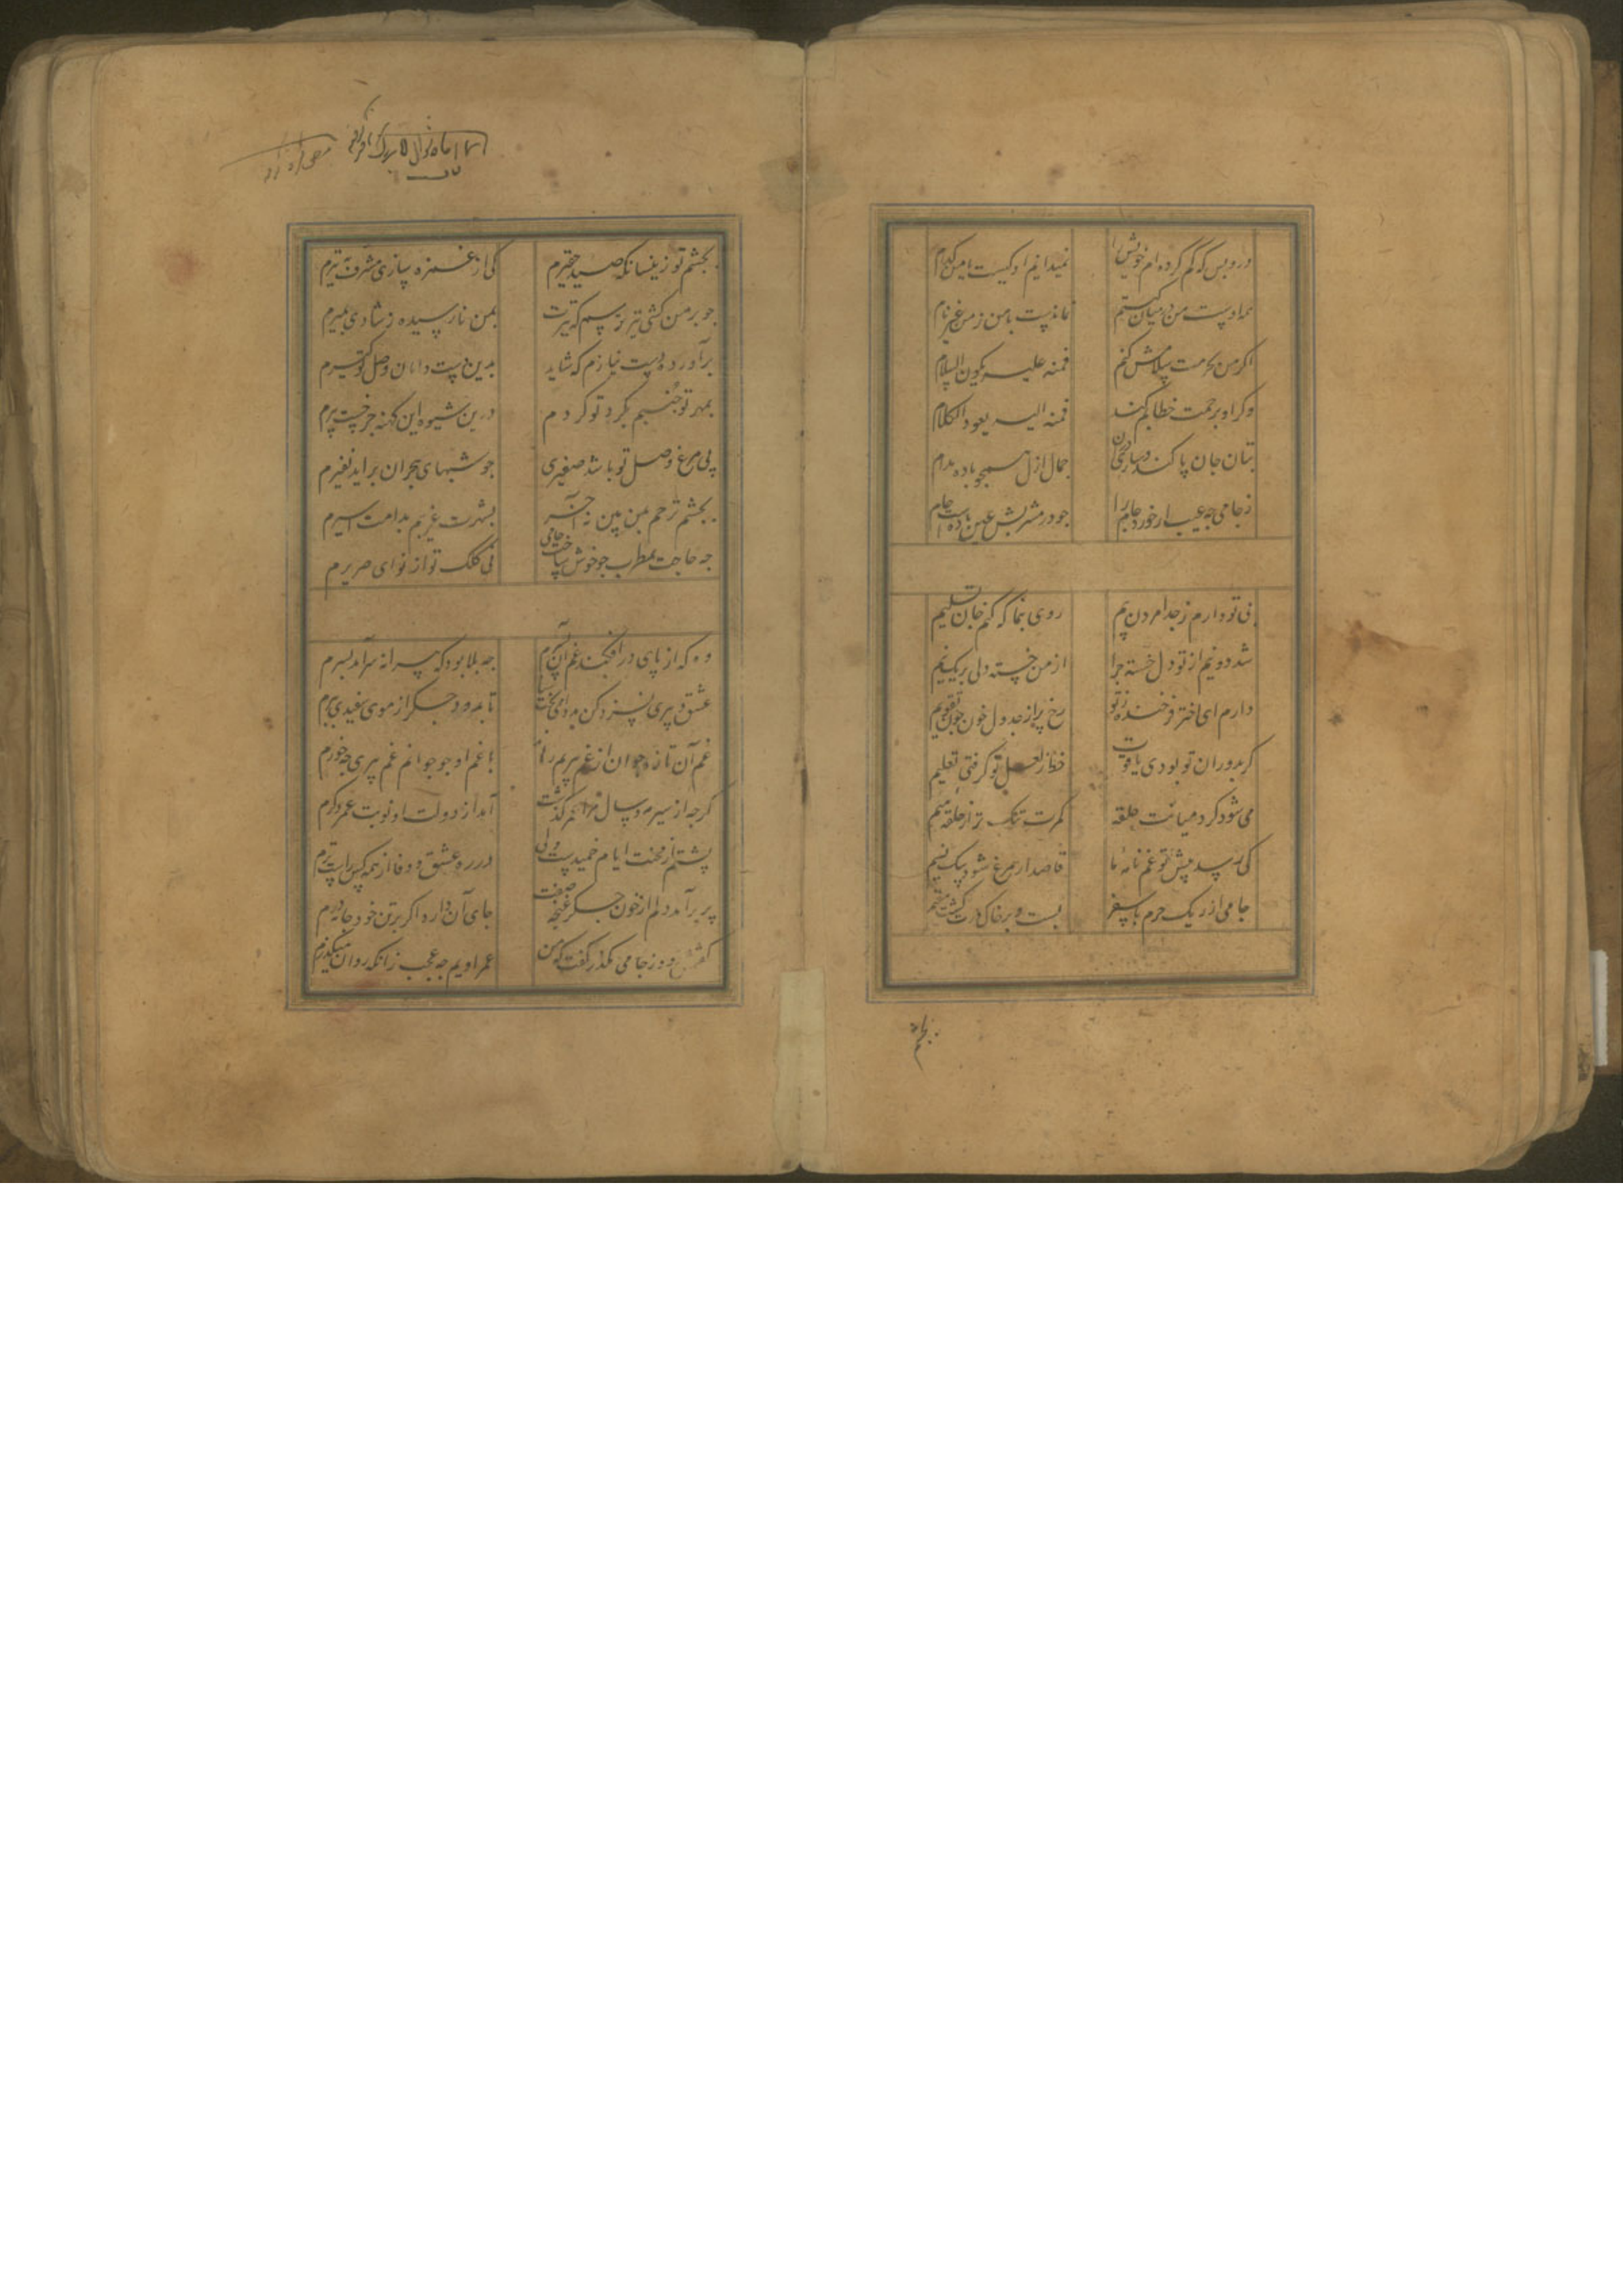 درو بس که گم کرده‌ام خویش را نمیدانم او کیست یا من کدام
همه اوست من در میان کیستم نماندست با من ز من غیر نام
اکر من بحرمت سلامش کنم فمنه علیه یکون السلام
وکر او برحمت خطابم کند فمنه الیه یعود الکلام
بتان جان پاکند و ساری دران جمال ازل همچو باده بجام
ز جامی چه عیب ار خورد جام را جو در مشربش عین باده است جام
بی تو دارم ز جدا مردن بیم روی بنما که کنم جان تسلیم
شد دو نیم از تو دل خسته جرا از من خسته دلی بر یک نیم
دارم ای اختر فرخنده ز تو رخ پر از جدول خون چون تقویم
کر بدوران تو بودی یاقوت خط ز لعل تو کرفتی تعلیم
می شود کرد میانت حلقه کمرت تنک تر از حلقه میم
کی رسد پیش تو غم نامه ما قاصد ار مرغ شود پیک نسیم
جامی از ریک حرم بار سفر بست و بر خاک درت کشت مقیم
بجشم
بجشم تو زینسان که صید حقیرم کی از غمزه سازی مشرف به تیرم
جو بر من کشی تیر ترسم که تیرت بمن نارسیده ز شادی بمیرم
برآورده دست نیازم که شاید بدین دست دامان وصل تو گیرم
بمهر تو جنبم بکرد تو کردم درین شیوه این کهنه جرخست پیرم
پی مرغ وصل تو باشد صفیری جو شبهای هجران براید نفیرم
بجشم ترحم بمن بین نه آخر بشهرت غریبم بدامت اسیرم
جه حاجت بمطرب جو خوش ساخت جامی نی کلک تو از نوای صریرم
وه که از پای در افکند غم آن پسرم جه بلا بود که پیرانه سر آمد بسرم
عشق و پیری نسزد کن مددی بخت سیاه تا به دود جکر از موی سفیدی ببرم
غم آن تازه جوان از غم پیریم رهاند با غم او جو جوانم غم پیری جه خورم
کرجه از سیر مه و سال مرا عمر کذشت آمد از دولت او نوبت عمر دکرم
پشتم از محنت ایام خمیدست ولی در ره عشق و وفا از همه کس راست ترم
پر برآمد دلم از خون جکر غنجه صفت جای آن دارد اکر بر تن خود جامه درم
کفتمش زود ز جامی مکذر کفت که من عمر اویم جه عجب زانکه روان میکذرم